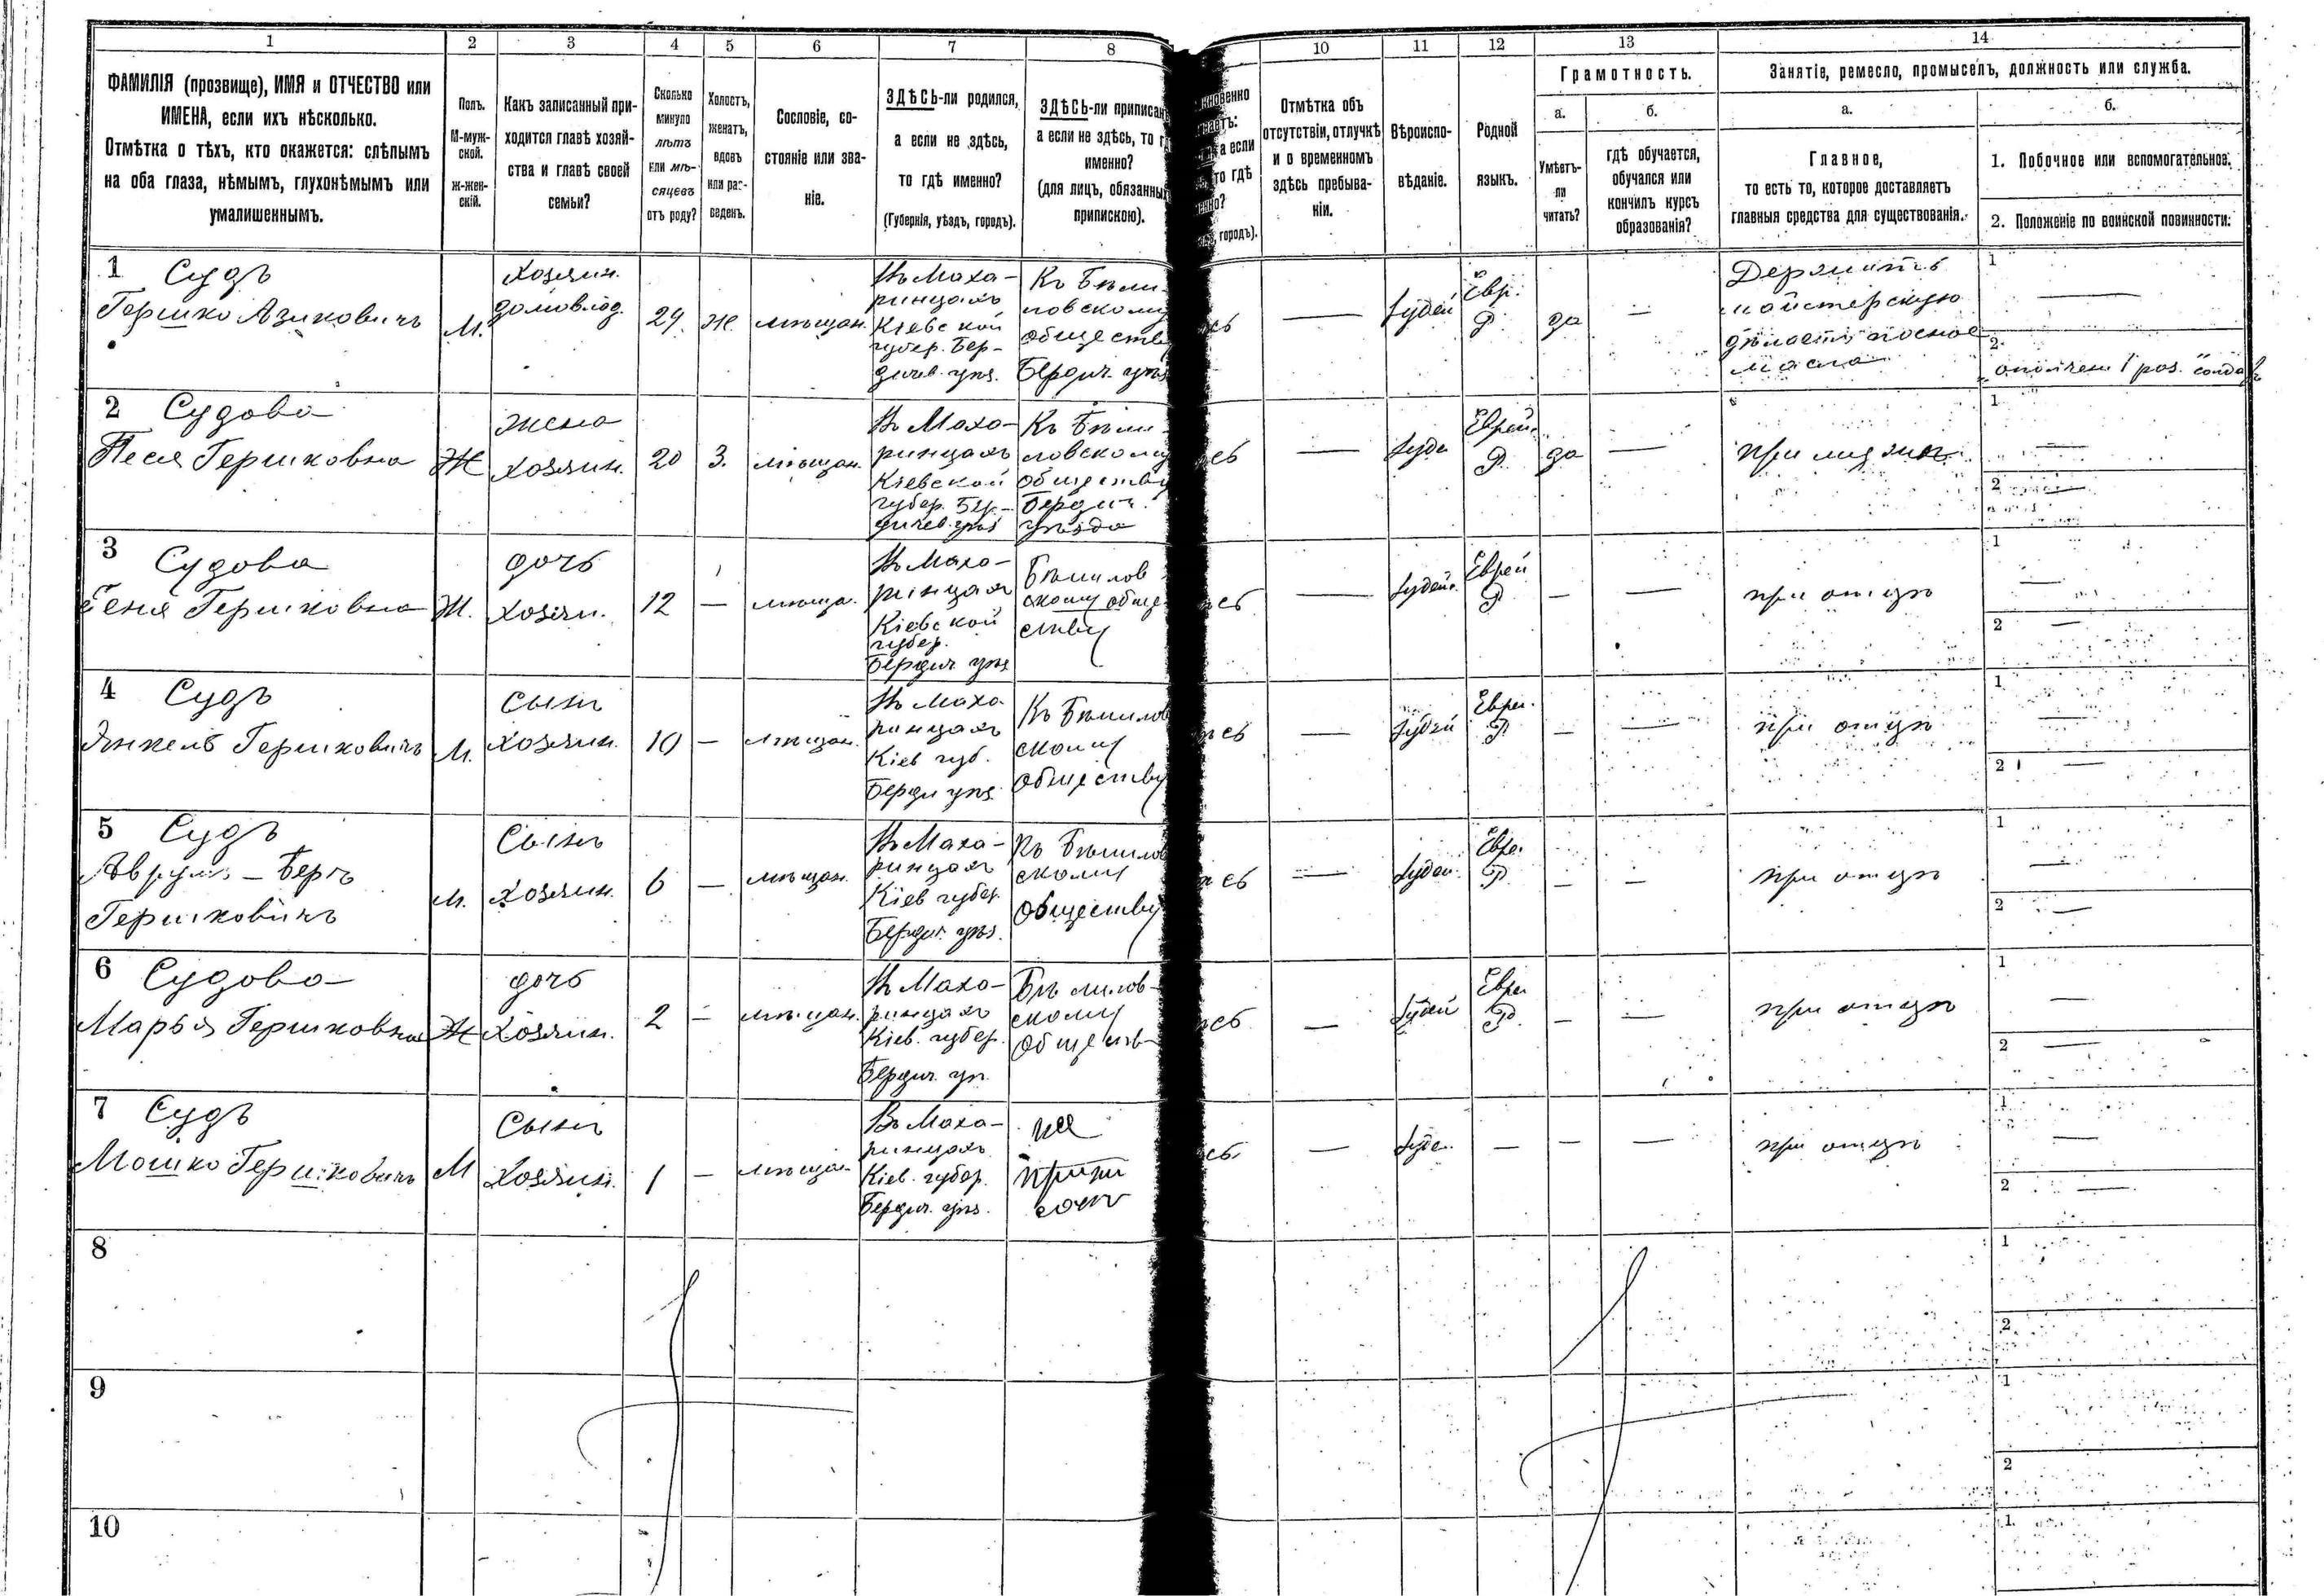 1
2
3
4
5
6
7
8
10
11
12
13
14
ФАМИЛІЯ (прозвище), ИМЯ и ОТЧЕСТВО или
ИМЕНА, если ихъ нѣсколько.
Отмѣтка о тѣхъ, кто окажется: слѣпымъ
на оба глаза, нѣмымъ, глухонѣмымъ или
умалишеннымъ.
Полъ.
М-муж-
ской.
Ж-жен-
скій.
Какъ записанный при-
ходится главѣ хозяй-
ства и главѣ своей
семьи?
Сколько
минуло
лѣтъ
или мѣ-
сяцевъ
отъ роду?
Холостъ,
женатъ,
вдовъ
или раз-
веденъ.
Сословіе, со-
стояніе или зва-
ніе.
ЗДѢСЬ-ли родился,
а если не здѣсь,
то гдѣ именно?
(Губернія, уѣздъ, городъ).
ЗДѢСЬ-ли приписан
а если не здѣсь, то г
именно?
(для лицъ, обязанны
припискою).
а если
то гдѣ
городъ).
Отмѣтка объ
отсутствіи, отлучкѣ
и о временномъ
здѣсь пребыва-
ніи.
Вѣроиспо-
вѣданіе.
Родной
языкъ.
Грамотность.
а.
Умѣетъ-
ли
читать?
б.
гдѣ обучается,
обучался или
кончилъ курсъ
образованія?
Занятіе, ремесло, промыселъ, должность или служба.
а.
Главное,
то есть то, которое доставляетъ
главныя средства для существованія.
б.
1. Побочное или вспомогательное.
2. Положеніе по воинской повинности:
1 Судъ
Гершко Азиковичъ
М.
Хозяин.
домовлад.
29.
Ж.
мѣщан.
Въ Маха-
ринцахъ
Кіевской
губер. Бер-
дичев. уѣз.
Къ Бѣли
ловскому
обществу
Бердич. уѣз
сь
—
Іудей
Евр.
Р.
да
—
Держитъ
майстерскую
дѣлаетъ посное
масло
1 —
2.
ополчен 1 раз.
2 Судова
Песя Гершковна
Ж
жена
хозяин.
20
3.
мѣщан.
Въ Маха-
ринцахъ
Кіевской
губер. Бер-
дичев. уѣз
Къ Бѣли
ловскому
обществу
Бердич.
уѣзда
сь
—
Іуде
Еврей.
Р.
да
—
при мужѣ
1 —
2 —
3 Судова
Геня Гершковна
Ж.
дочь
хозяи.
12
—
мѣща.
Въ Маха-
ринцахъ
Кіевской
губер.
Бердич уѣз
Бѣлилов
скому обще
ству
сь
—
Іудей.
Еврей
Р
—
—
при отцѣ
1 —
2 —
4 Судъ
Янкель Гершковичъ
М.
сынъ
хозяин.
10
—
мѣщан.
Въ Маха
ринцахъ
Кіев губ.
Берди уѣз.
Къ Бѣлилов
скому
обществу
сь
—
Іудей
Евре.
Р
—
—
при отцѣ
1 —
2 —
5 Судъ
Аврумъ-Беръ
Гершковичъ
М.
Сынъ
Хозяин.
6
—
мѣщан.
Въ Маха-
ринцахъ
Кіев губер.
Бердич. уѣз.
Къ Бѣлилов
скому
обществу
сь
—
Іудей.
Евре.
Р
—
—
при отцѣ
1 —
2 —
6 Судова
Марья Гершковна
Ж
дочь
Хозяин.
2
—
мѣщан.
Въ Маха-
ринцахъ
Кіев. губер.
Бердич. уѣ.
Бѣлилов-
скому
обществ
сь
—
Іудей
Евре
Р
—
—
при отцѣ
1 —
2 —
7 Судъ
Мошко Гершковичъ
М
Сынъ
Хозяин.
1
—
мѣщан.
Въ Маха-
ринцахъ
Кіев. губер.
Бердич. уѣз.
не
припи
санъ
сь
—
Іуде.
—
—
—
при отцѣ
1 —
2 —
8
1
2
9
1
2
10
1.